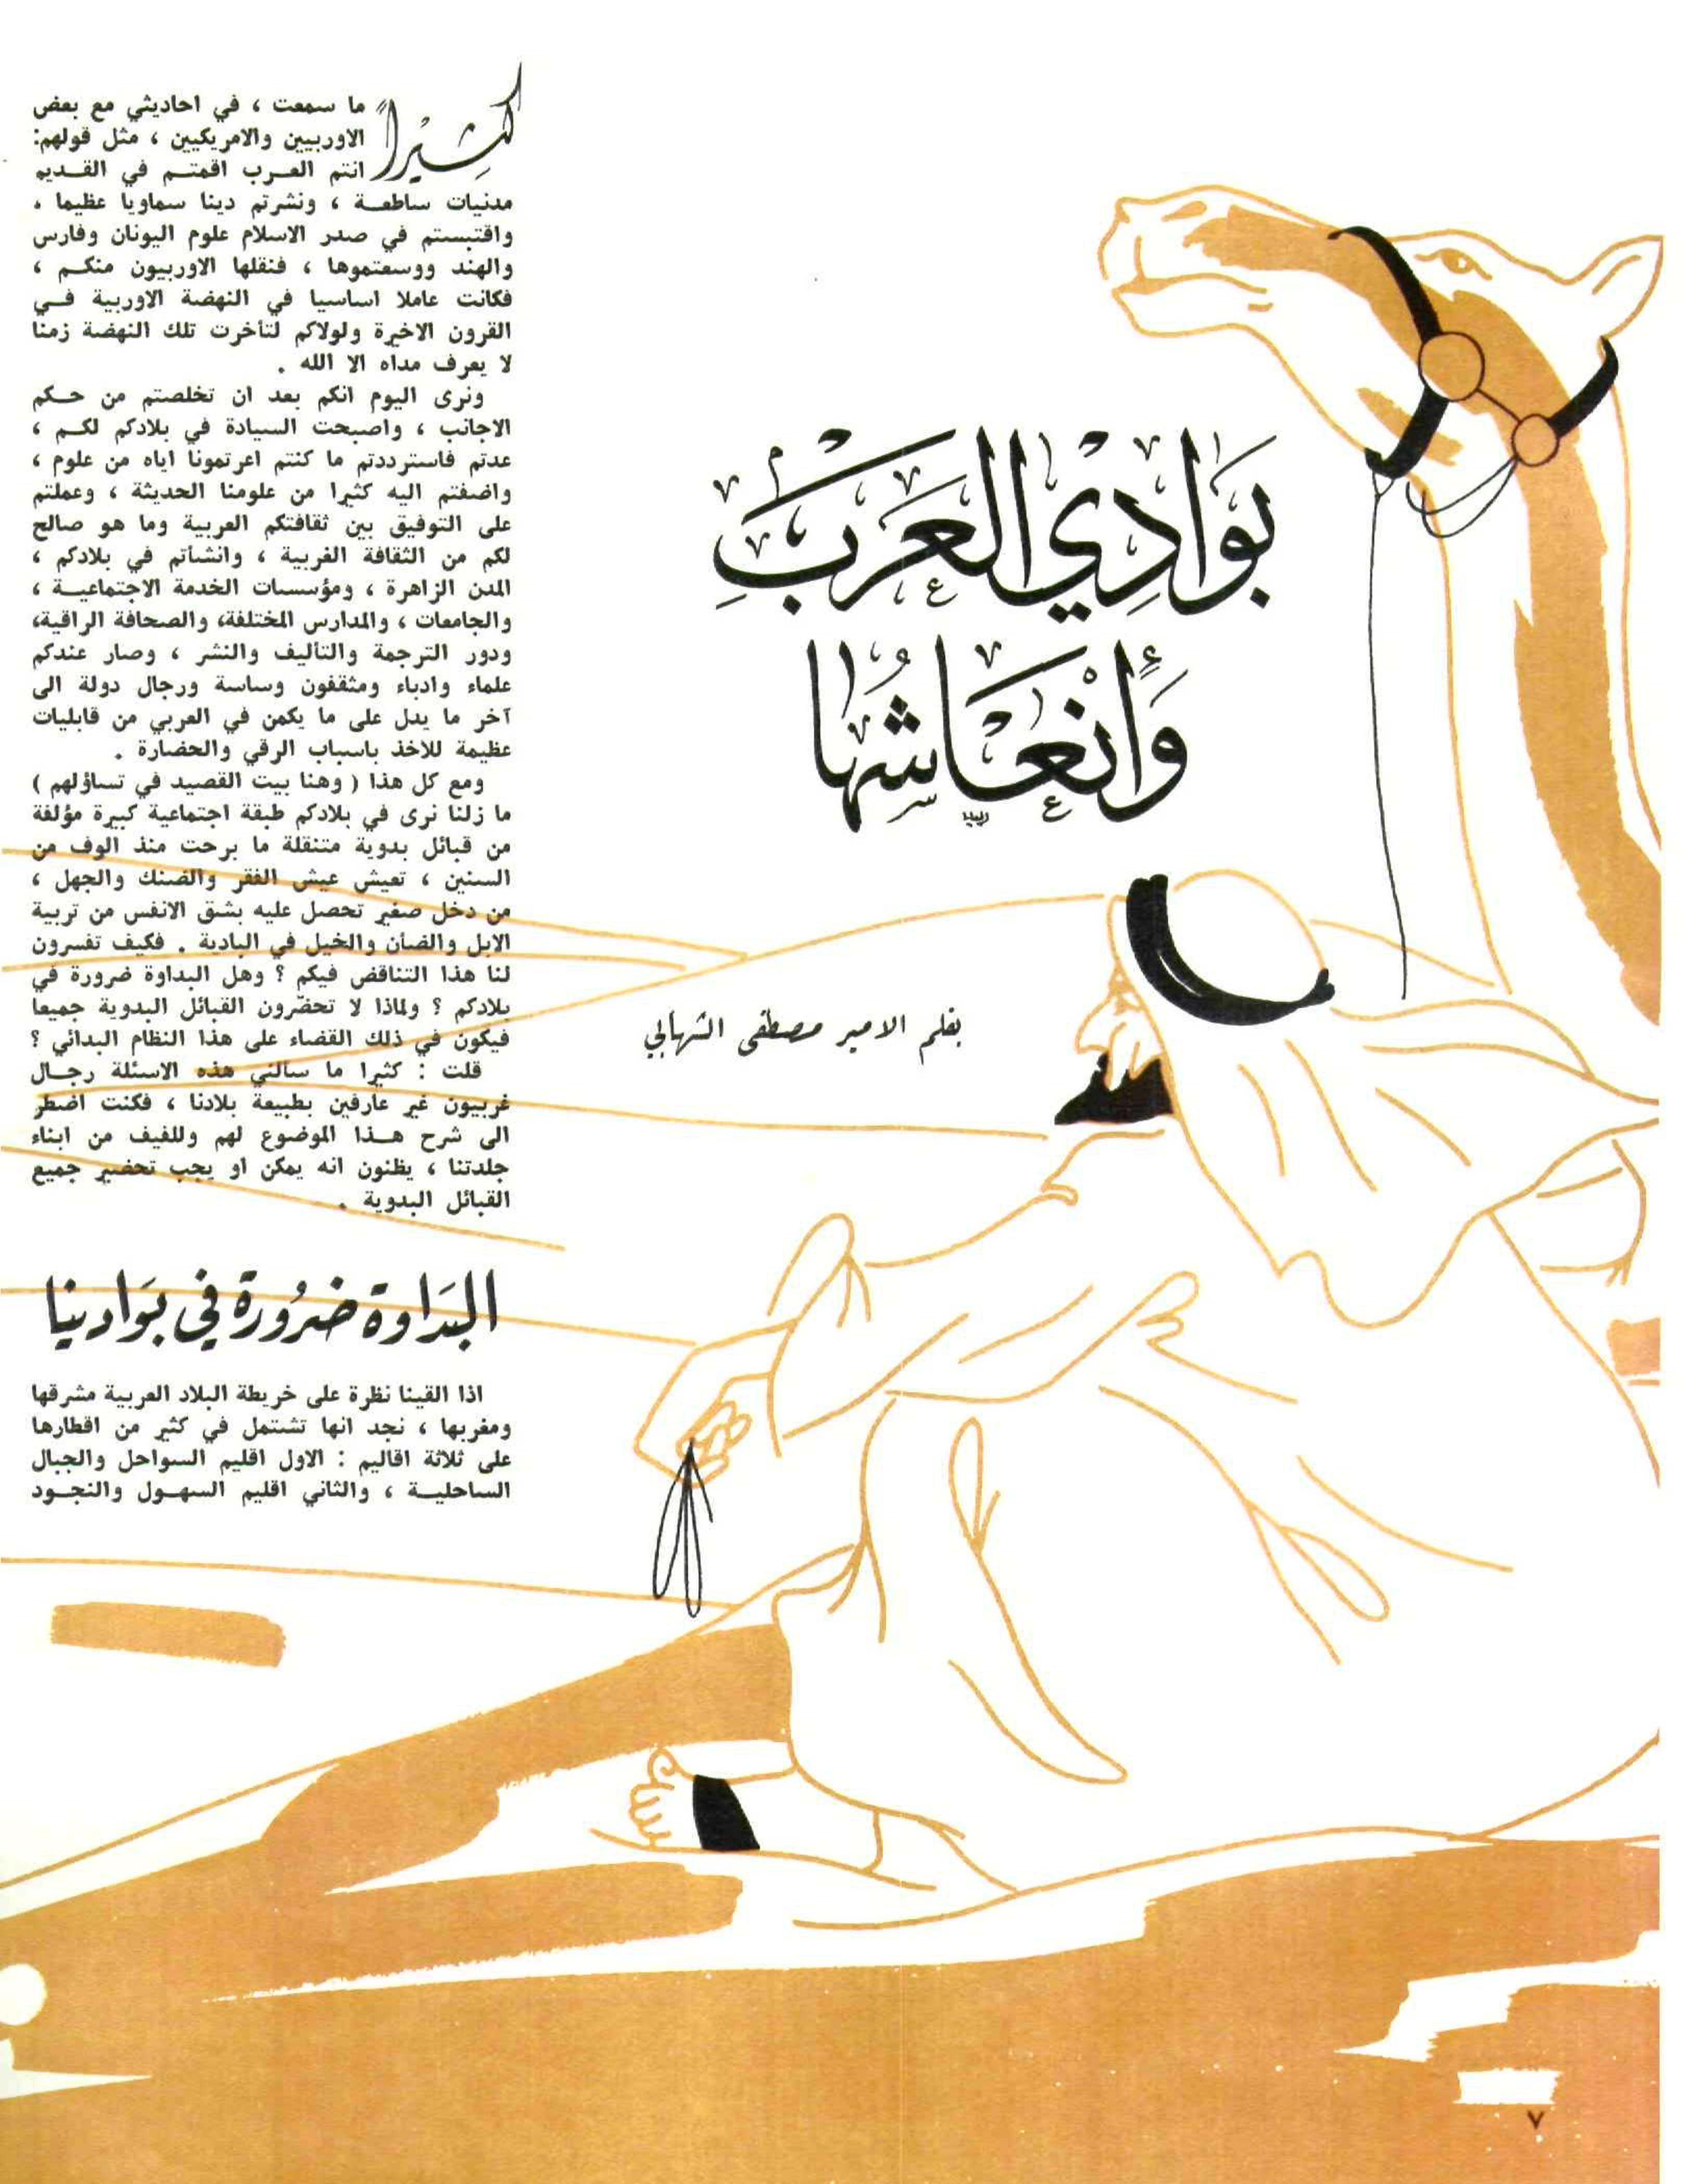 بَوَادِي العَرَبِ
وَإنْعَاشُهَا
بقلم الامير مصطفى الشهابي
كثيراً ما سمعت ، في احاديثي مع بعض
الاوربيين والامريكيين ، مثل قولهم:
انتم العرب اقمتم في القديم
مدنيات ساطعة ، ونشرتم دينا سماويا عظيما .
واقتبستم في صدر الاسلام علوم اليونان وفارس
والهند ووسعتموها ، فنقلها الاوربيون منكم ،
فكانت عاملا اساسيا في النهضة الاوربية في
القرون الاخيرة ولولاكم لتأخرت تلك النهضة زمنا
لا يعرف مداه الا الله .
ونرى اليوم انكم بعد ان تخلصتم من حكم
الاجانب ، واصبحت السيادة في بلادكم لكم ،
عدتم فاسترددتم ما كنتم اعرتمونا اياه من علوم ،
واضفتم اليه كثيرا من علومنا الحديثة ، وعملتم
على التوفيق بين ثقافتكم العربية وما هو صالح
لكم من الثقافة الغربية ، وانشأتم في بلادكم ،
المدن الزاهرة ، ومؤسسات الخدمة الاجتماعية ،
والجامعات ، والمدارس المختلفة، والصحافة الراقية،
ودور الترجمة والتأليف والنشر ، وصار عندكم
علماء وادباء ومثقفون وساسة ورجال دولة الى
آخر ما يدل على ما يكمن في العربي من قابليات
عظيمة للاخذ باسباب الرقي والحضارة .
ومع كل هذا ( وهنا بيت القصيد في تساؤلهم )
ما زلنا نرى في بلادكم طبقة اجتماعية كبيرة مؤلفة
من قبائل بدوية متنقلة ما برحت منذ الوف من
السنين ، تعيش عيش الفقر والضنك والجهل ،
من دخل صغير تحصل عليه بشق الانفس من تربية
الابل والضأن والخيل في البادية . فكيف تفسرون
لنا هذا التناقض فيكم ؟ وهل البداوة ضرورة في
بلادكم ؟ ولماذا لا تحضّرون القبائل البدوية جميعا
فيكون في ذلك القضاء على هذا النظام البدائي ؟
قلت : كثيرا ما سألني هذه الاسئلة رجال
غربيون غير عارفين بطبيعة بلادنا ، فكنت اضطر
الى شرح هذا الموضوع لهم وللفيف من ابناء
جلدتنا ، يظنون انه يمكن او يجب تحضير جميع
القبائل البدوية .
البَدَاوة ضَرُورَة في بَوَادينا
اذا القينا نظرة على خريطة البلاد العربية مشرقها
ومغربها ، نجد انها تشتمل في كثير من اقطارها
على ثلاثة اقاليم : الاول اقليم السواحل والجبال
الساحلية ، والثاني اقليم السهول والنجود
٧